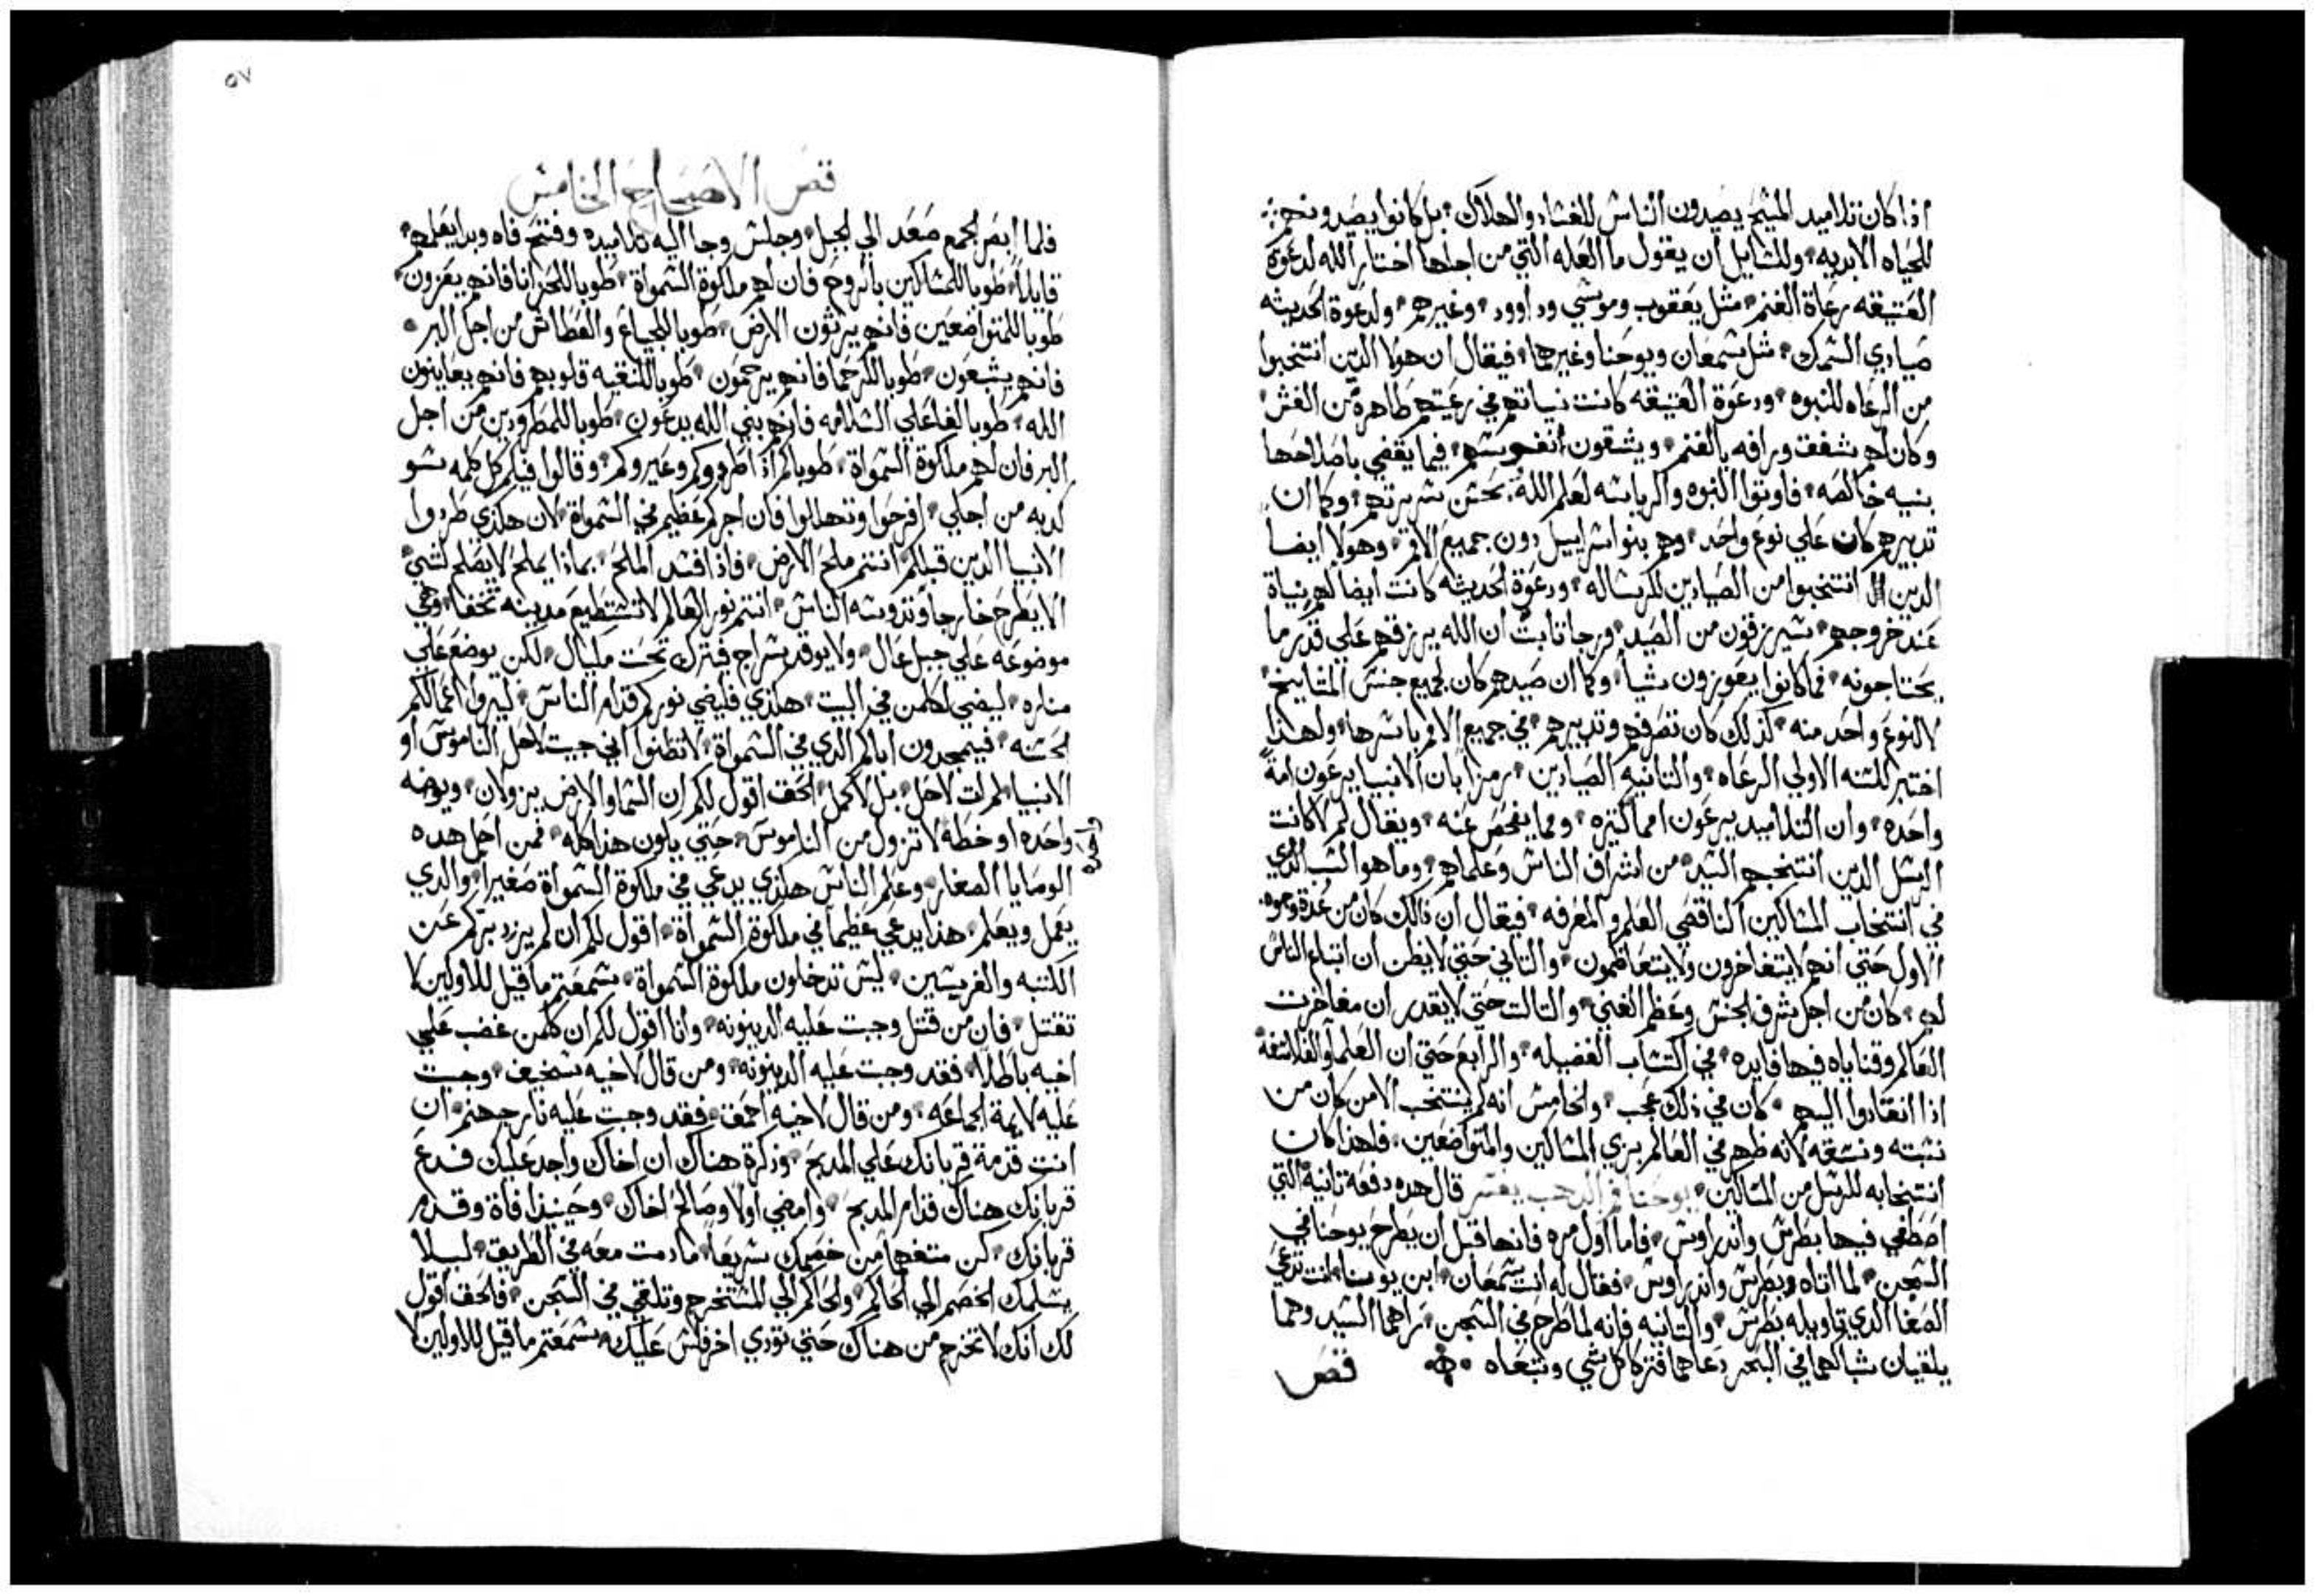 اذا كان تلاميد المسيح يصيدون الناس للفساد والهلاك بل كانوا يصيدونهم
للحياه الابديه وللسايل ان يقول ما العله التي من اجلها اختار الله لدعوة
العتيقه رعاة الغنم مثل يعقوب وموسي وداوود وغيرهم ولدعوة الحديثه
صيادي السمك مثل سمعان ويوحنا وغيرهما فيقال ان هولا الدين انتخبوا
من الرعاه للنبوه ودعوة العتيقه كانت نياتهم في رعيتهم طاهرة من الغش
وكان لهم شفقت ورافه بالغنم ويشقون انفسهم فيما يقضي باصلاحها
بنيه خالصه فاوتوا النبوه والرياسه لعلم الله بحسن سريرتهم وكما ان
تدبيرهم كان علي نوع واحد وهم بنوا اسراييل دون جميع الامم وهولا ايضا
الدين انتخبوا من الصيادين للرساله ودعوة الحديثه كانت ايضا لهم نياة
عند خروجهم يسيرزقون من الصيد ورجا تابت ان الله يرزقهم علي قدر ما
يحتاجونه فما كانوا يعوزون شيا وكما ان صيدهم كان لجميع جنس
لا لنوع واحد منه كذلك كان تصرفهم وتدبيرهم في جميع الامم باسرها ولهذا
اختير للسنه الاولي الرعاه والتانيه الصيادين رمزا بان الانبيا يرعون امة
واحده وان التلاميد يرعون امما كتيره ومما يفحص عنه ويقال لم لا كانت
الرسل الدين انتخبهم السيد من اشراف الناس وعلماهم وما هو السبب الدي
في انتخاب المساكين الناقصي العلم والمعرفه فيقال ان دالك كان من عدة وجوه
الاول حتي انهم لا يتفاخرون ولا يتعاظمون والتاني حتي لا يظن ان اتباع الناس
لهم كان من اجل شرف الجنس وعظم الغني والتالت حتي لا يقدر ان مفاخرت
العالم وقناياه فيها فايده في اكتساب الفضيله والرابع حتي ان العلما والفلاسفة
اذا انقادوا اليهم كان في ذلك عجب والخامس انه لم ينتخب الا من كان من
نسبته ونسقه لانه ظهر في العالم بزي المساكين والمتواضعين فلهذا كان
انتخابه للرسل من المساكين يوحنا فم الدهب يفسر قال هده دفعة تانية التي
اصطفي فيها بطرس واندراوس فاما اول مره فانها قبل ان يطرح يوحنا في
السجن لما اتاه بطرس واندراوس فقال له انت سمعان ابن يونا انت تدعي
الصفا الدي تاويله بطرس والتانيه فانه لما طرح في السجن راهما السيد وهما
يلقيان شباكهما في البحر دعاهما فتركا كل شي وتبعاه
فص
٥٧
فص الاصحاح الخامس
فلما ابصر الجمع صعد الي الجبل وجلس وجا اليه تلاميده وفتح فاه وبدا يعلمهم
قايلا طوبا للمساكين بالروح فان لهم ملكوة السمواة طوبا للحزانا فانهم يعزون
طوبا للمتواضعين فانهم يرثون الارض طوبا للجياع والعطاش من اجل البر
فانهم يشبعون طوبا للرحما فانهم يرحمون طوبا للنقيه قلوبهم فانهم يعاينون
الله طوبا لفاعلي السلامه فانهم بني الله يدعون طوبا للمطرودين من اجل
البر فان لهم ملكوة السمواة طوباكم اذا طردوكم وعيروكم وقالوا فيكم كل كلمه سو
كدبه من اجلي افرحوا وتهللوا فان اجركم عظيم في السمواة لان هكذي طردوا
الانبيا الدين قبلكم انتم ملح الارض فاذا فسد الملح بماذا يملح لا يصلح لشي
الا يطرح خارجا وتدوسه الناس انتم نور العالم لا تستطيع مدينه تخفا وهي
موضوعه علي جبل عال ولا يوقد سراج فيترك تحت مكيال لكن يوضع علي
مناره ليضي لكلمن في البيت هكذي فليضي نوركم قدام الناس ليروا اعمالكم
لحسنه فيمجدون اباكم الدي في السمواة لا تظنوا اني جيت لاحل الناموس او
الانبيا لم ات لاحل بل لاكمل الحق اقول لكم ان السما والارض يزولان ويوطه
واحده او خطه لا تزول من الناموس حتي يكون هذا كله فمن احل هده
الوصايا الصغار وعلم الناس هكذي يدعي في ملكوة السمواة صغيرا والدي
يعمل ويعلم هذا يدعي عظيما في ملكوة السمواة اقول لكم ان لم يزد بركم عن
الكتبه والفريسين ليس تدخلون ملكوة السمواة سمعتم ما قيل للاولين لا
تقتل فان من قتل وجبت عليه الدينونه وانا اقول لكم ان كلمن غضب علي
اخيه باطلا فقد وجبت عليه الدينونه ومن قال لاخيه سخيف وجبت
عليه لايمة الجماعه ومن قال لاخيه احمق فقد وجبت عليه نار جهنم ان
انت قدمة قربانك علي المدبح وذكرة هناك ان اخاك واجد عليك فدع
قربانك هناك قدام المدبح وامضي اولا وصالح اخاك وحينيذ افاة وقدم
قربانك كن متفهما من خصمك سريعا مادمت معه في الطريق ليلا
يسلمك الخصم الي الحاكم والحاكم الي المستخرج وتلقي في السجن فالحق اقول
لك انك لا تخرج من هناك حتي تودي اخر فلس عليك سمعتم ما قيل للاولين لا